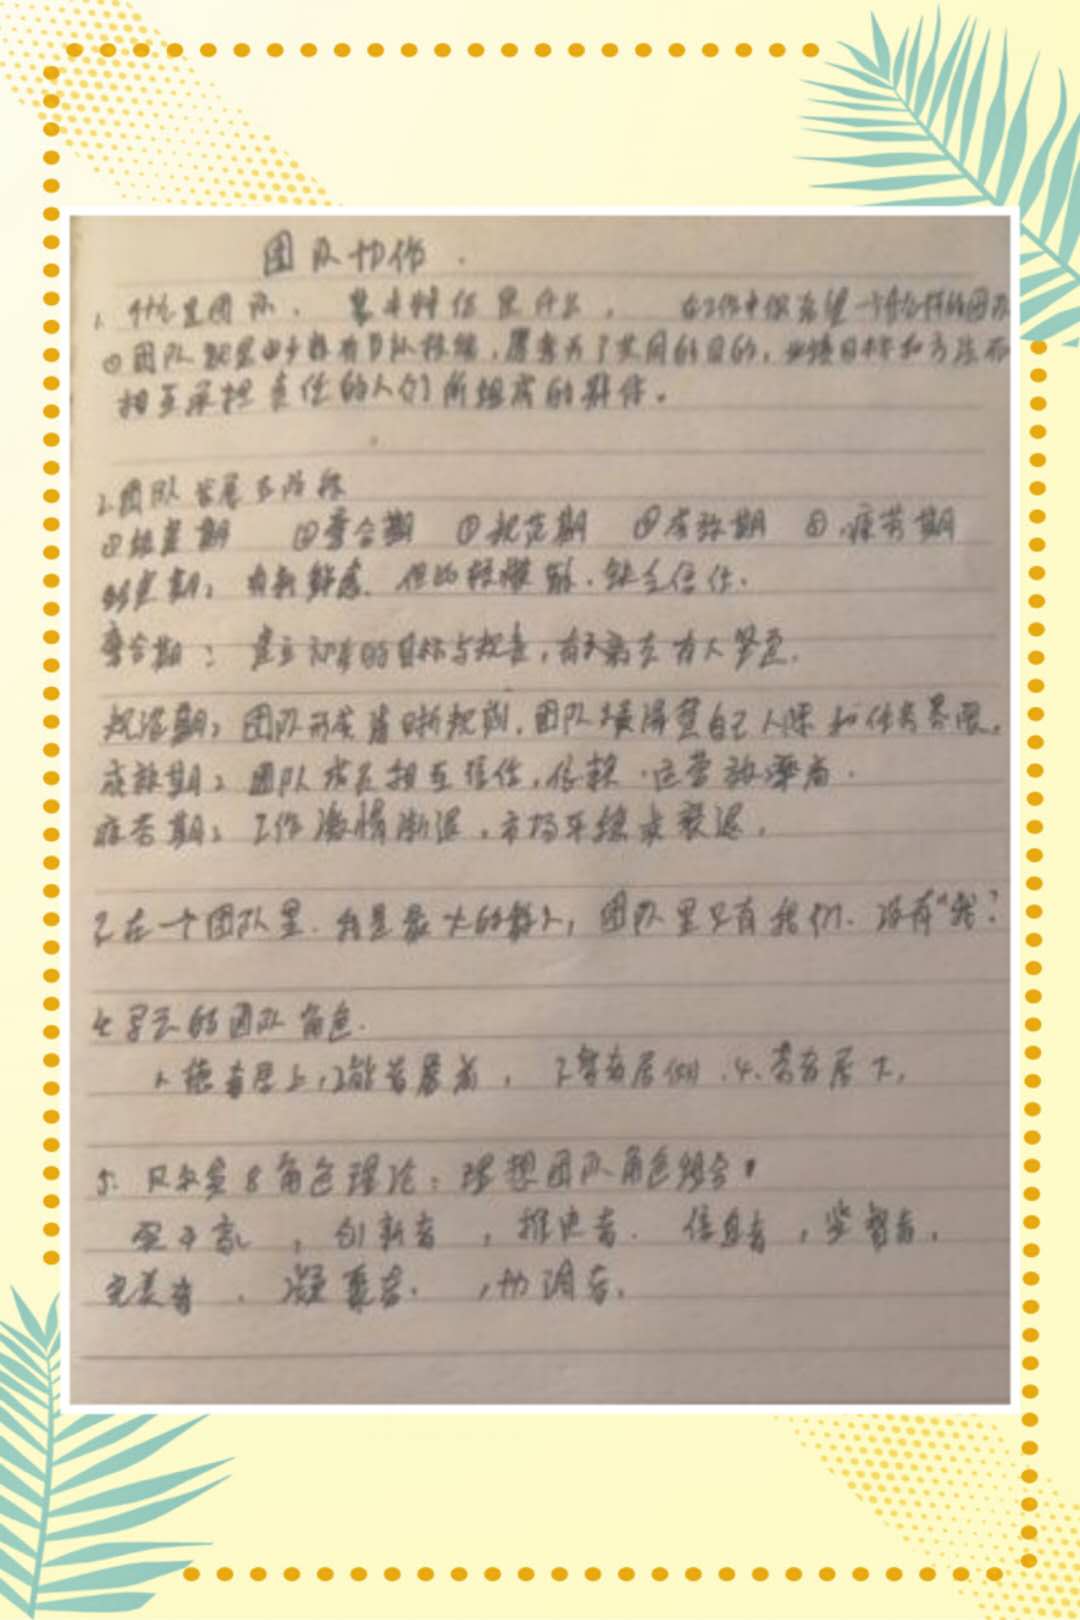 团队协作
1. 什么是团队, 基本特征是什么, 在工作中你希望一个什么样的团队
①团队就是由少数有 技能, 愿意为了共同的目的, 业绩目标和方法而
相互承担责任的人们所组成的群体。
2.团队发展五阶段
①组建期 ②磨合期 ③规范期 ④成效期 ⑤疲劳期
组建期: 有新鲜感、但 , 缺乏信任.
磨合期: 建立初步的目标与规章, 有 离去有人坚定.
规范期: 团队形成 规则, 团队 自己 和任务界限.
成效期: 团队成员相互信任, 依赖.运营效率高.
疲劳期: 工作激情渐退, 市场 衰退.
3.在一个团队里.我是最大的敌人, 团队里只有我们.没有“我”
4. 的团队角色.
1.德者居上, 2.能者居前, 3.智者居侧.4.劳者居下.
5. 贝尔宾8角色理论: 理想团队角色组合
实干家, 创新者, 推进者. 信息者, 监督者.
完美者. 凝聚者. , 协调者.